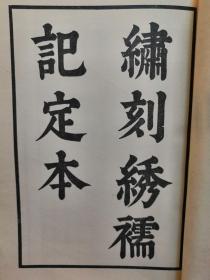 繡刻綉襦
記定本